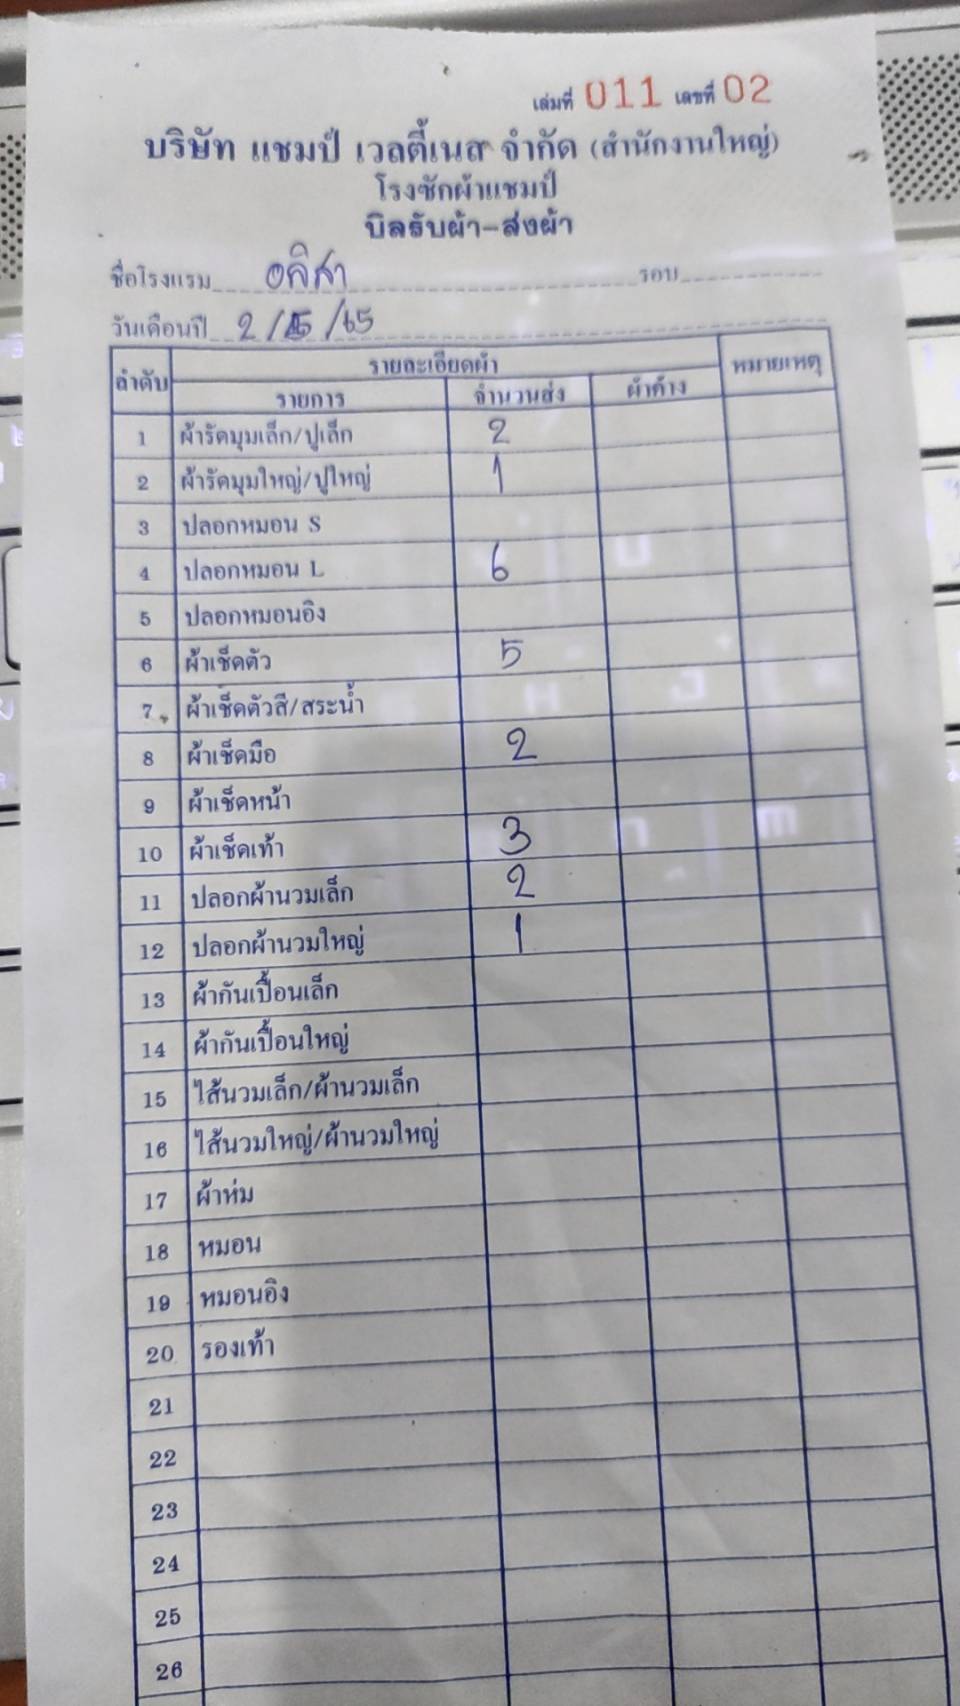 เล่มที่ 011 เลขที่ 02
บริษัท แชมป์ เวลตี้เนส จำกัด (สำนักงานใหญ่)
โรงซักผ้าแชมป์
บิลรับผ้า-ส่งผ้า
ชื่อโรงแรม อลิสา รอบ
วันเดือนปี 2/5/65
ลำดับ รายละเอียดผ้า หมายเหตุ
รายการ จำนวนส่ง ผ้าค้าง
1 ผ้ารัดมุมเล็ก/ปูเล็ก 2
2 ผ้ารัดมุมใหญ่/ปูใหญ่ 1
3 ปลอกหมอน S
4 ปลอกหมอน L 6
5 ปลอกหมอนอิง
6 ผ้าเช็ดตัว 5
7 ผ้าเช็ดตัวสี/สระน้ำ
8 ผ้าเช็ดมือ 2
9 ผ้าเช็ดหน้า
10 ผ้าเช็ดเท้า 3
11 ปลอกผ้านวมเล็ก 2
12 ปลอกผ้านวมใหญ่ 1
13 ผ้ากันเปื้อนเล็ก
14 ผ้ากันเปื้อนใหญ่
15 ไส้นวมเล็ก/ผ้านวมเล็ก
16 ไส้นวมใหญ่/ผ้านวมใหญ่
17 ผ้าห่ม
18 หมอน
19 หมอนอิง
20 รองเท้า
21
22
23
24
25
26